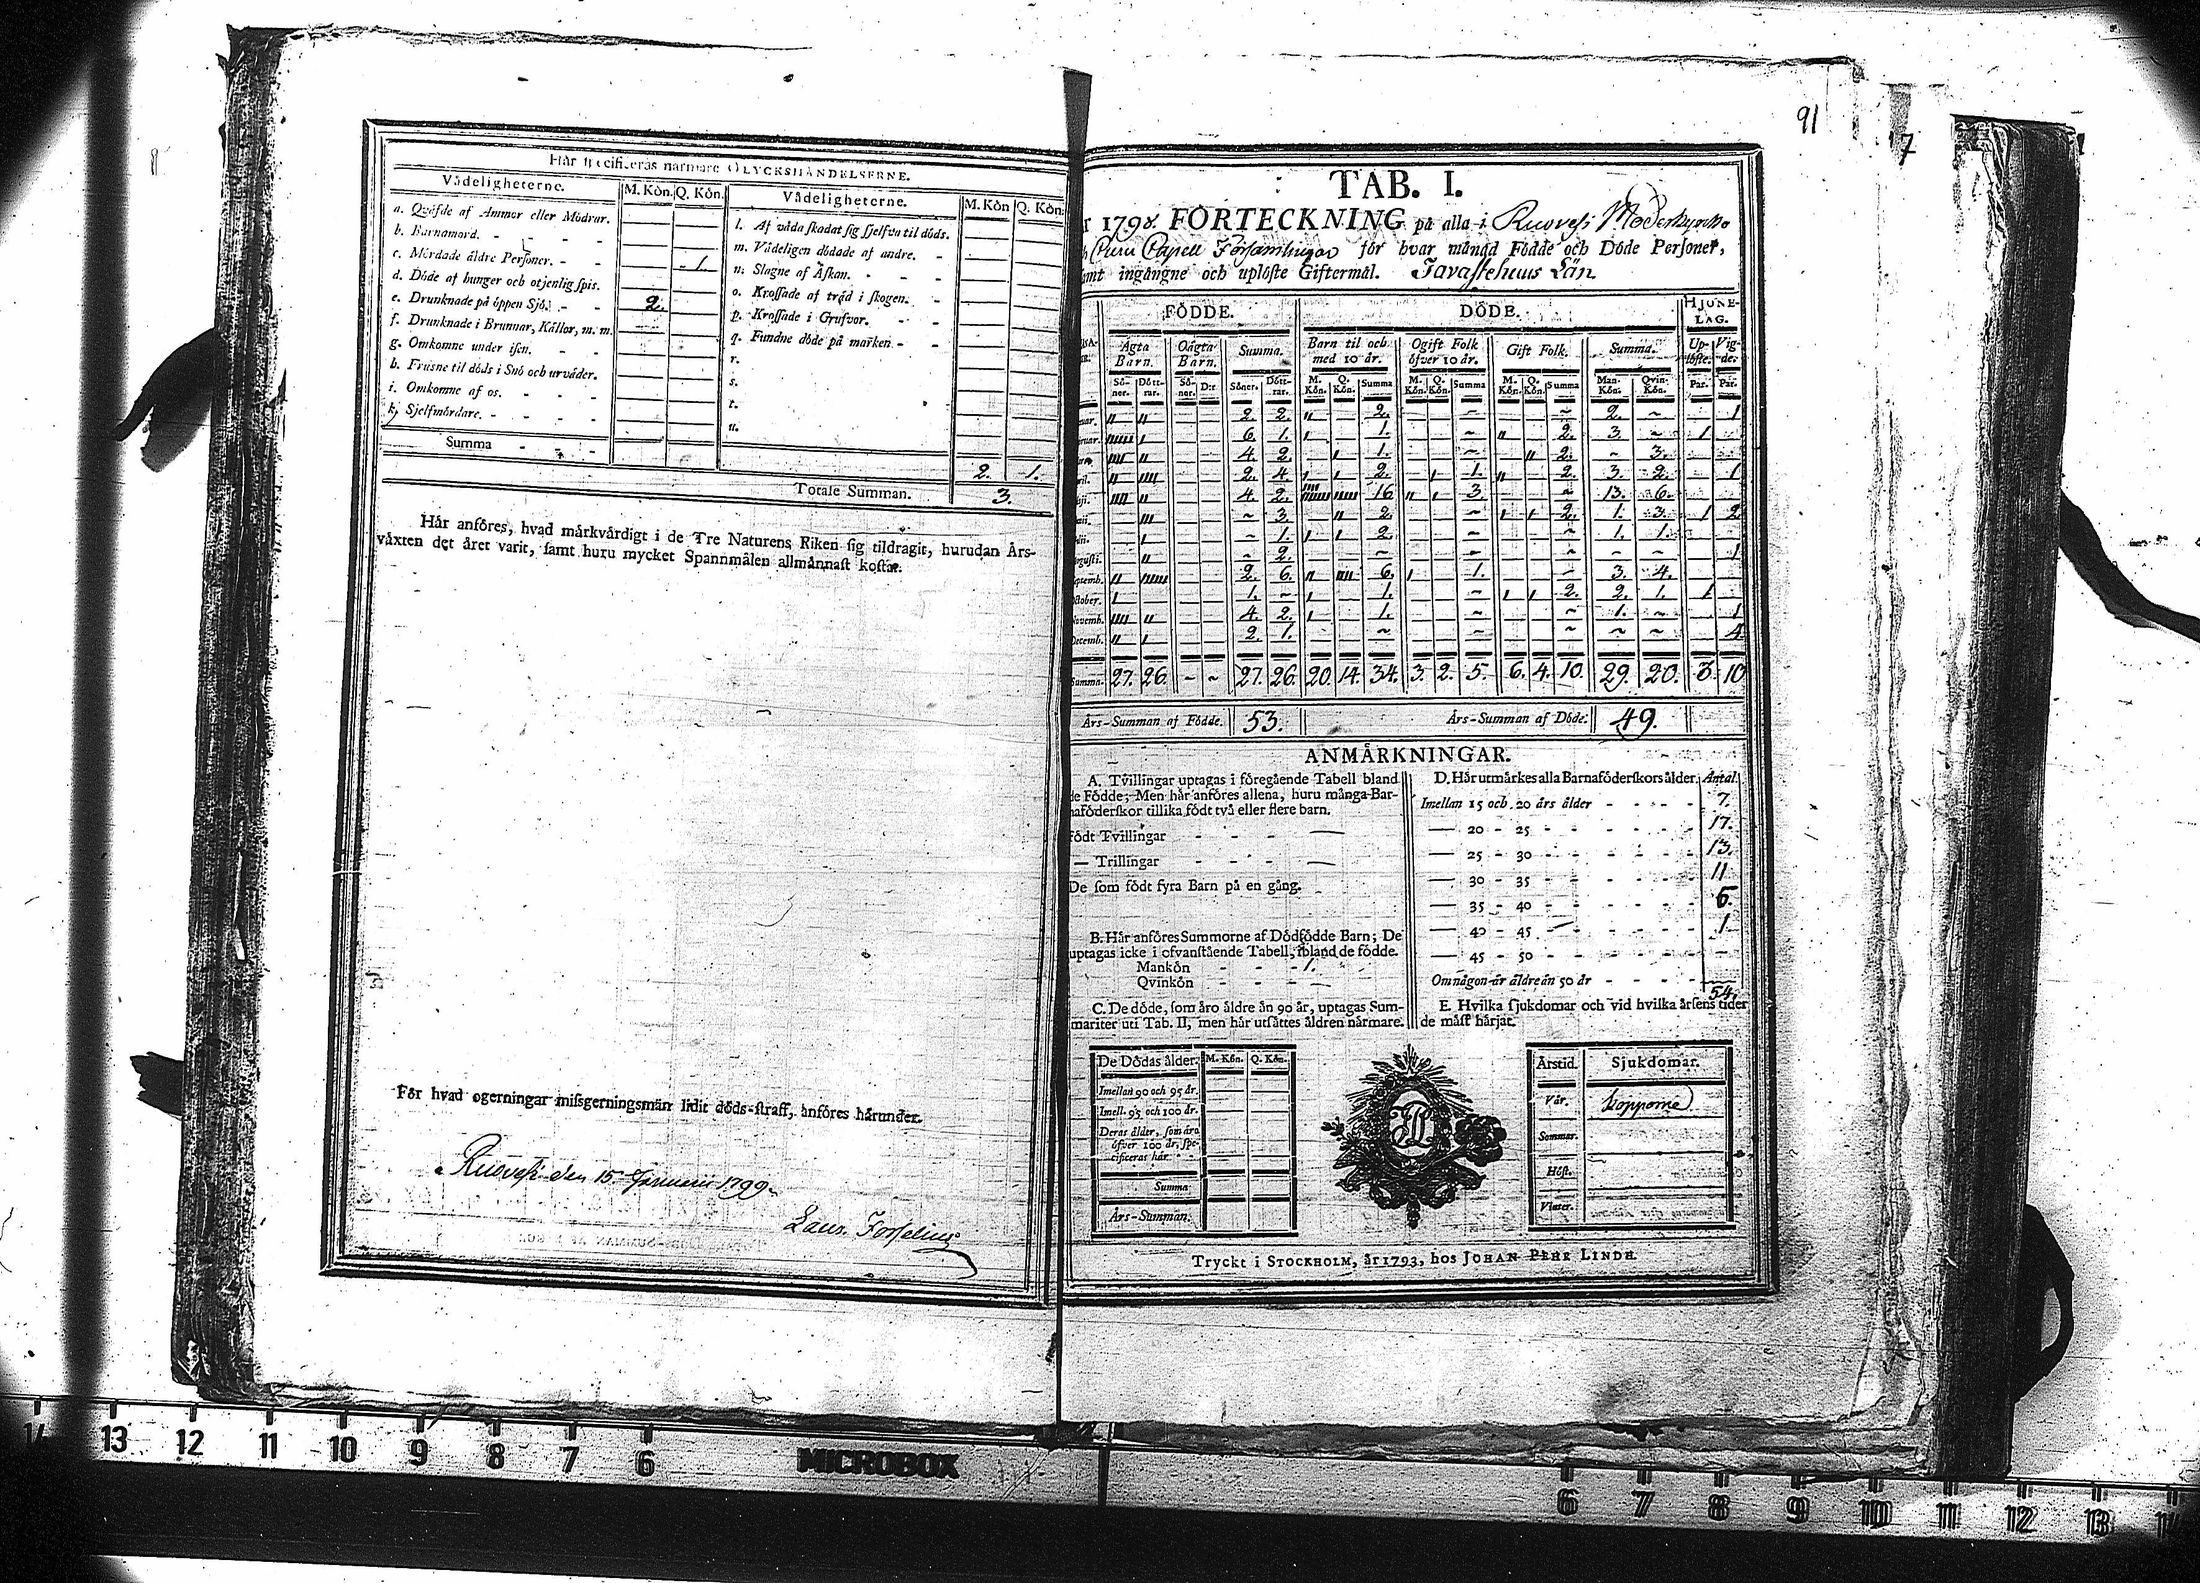 91
7
Här specificeras närmare OLYCKSHÄNDELSERNE.
Vådeligheterne. M. Kön. Q. Kön.
a. Qväfde af Ammor eller Mödrar.
b. Barnamord. - - - -
c. Mördade äldre Personer. - - - 1.
d. Döde af hunger och otjenlig spis.
e. Drunknade på öppen Sjö. - - 2.
f. Drunknade i Brunnar, Källor, m. m.
g. Omkomne under isen. - -
h. Frusne til döds i Snö och urväder.
i. Omkomne af os. - - -
k. Sjelfmördare. - - - -
Summa - - -
Vådeligheterne. M. Kön Q. Kön.
l. Af våda skadat sig sjelfva til döds.
m. Vådeligen dödade af andre. -
n. Slagne af Åskan. - - -
o. Krossade af träd i skogen. -
p. Krossade i Grufvor. - -
q. Fundne döde på marken. - -
r.
s.
t.
u.
2. 1.
Totale Summan. 3.
Här anföres, hvad märkvärdigt i de Tre Naturens Riken sig tildragit, hurudan Års-
växten det året varit, samt huru mycket Spannmålen allmännast kostar.
För hvad ogerningar missgerningsmän lidit döds-straff, anföres härunder.
Ruovesi den 15 Januarii 1799.
Laur. Forselius
TAB. I.
1798. FÖRTECKNING på alla i Ruovesi Moderkyrko
Capell Församlingar för hvar månad Födde och Döde Personer,
samt ingångne och uplöste Giftermål. Tavastehuus Län.
FÖDDE. DÖDE. HJONE-
LAG.
Ägta Barn. Oägta Barn. Summa. Barn til och med 10 år. Ogift Folk öfver 10 år. Gift Folk. Summa. Up-löste. Vig-de.
Sö-ner. Dött-rar. Sö-ner. D:r Söner. Dött-rar. M. Kön. Q. Kön. Summa M. Kön. Q. Kön. Summa M. Kön. Q. Kön. Summa Man-Kön. Qvin-Kön. Par. Par.
" " 2. 2. " 2. ~ ~ 2. ~ 1
6. 1. 1. ~ " 2. 3. ~ 1
4. 2. 1. ~ " 2. ~ 3.
2. 4. 2. 1. " 2. 3. 2. 1
4. 2. 16 3. ~ 13. 6.
~ 3. 2. ~ 2. 1. 3. 1 2
~ 1. 2. ~ ~ 1. 1.
~ 2. ~ ~ ~ ~ ~ 1
2. 6. 6. 1. ~ 3. 4.
1. ~ 1. ~ 2. 2. 1. 1
4. 2. 1. ~ ~ 1. ~ 1
2. 1. ~ ~ ~ ~ ~ 4
Summa. 27. 26 - ~ 27. 26. 20. 14. 34. 3. 2. 5. 6. 4. 10. 29. 20. 3. 10
Års-Summan af Födde. 53. Års-Summan af Döde. 49.
ANMÄRKNINGAR.
A. Tvillingar uptagas i föregående Tabell bland
de Födde; Men här anföres allena, huru många Bar-
naföderskor tillika födt två eller flere barn.
Födt Tvillingar - - - —
— Trillingar - - - —
De som födt fyra Barn på en gång. -
B. Här anföres Summorne af Dödfödde Barn; De
uptagas icke i ofvanstående Tabell, ibland de födde.
Mankön - - - 1.
Qvinkön - - - -
C. De döde, som äro äldre än 90 år, uptagas Sum-
mariter uti Tab. II, men här utsättes åldren närmare.
D. Här utmärkes alla Barnaföderskors ålder. Antal
Imellan 15 och 20 års ålder - - - - 7.
— 20 - 25 - - - - - 17.
— 25 - 30 - - - - - 13.
— 30 - 35 - - - - - 11
— 35 - 40 - - - - - 5.
— 40 - 45 - - - - - 1
— 45 - 50 - - - - -
Om någon är äldre än 50 år - - - -
54.
E. Hvilka sjukdomar och vid hvilka årsens tider
de mäst härjat.
De Dödas ålder. M. Kön. Q. Kön.
Imellan 90 och 95 år.
Imell. 95 och 100 år.
Deras ålder, som äro
öfver 100 år, spe-
cificeras här. -
Summa
Års-Summan.
Årstid. Sjukdomar.
Vår. Kopporne
Sommar.
Höst.
Vinter.
Tryckt i STOCKHOLM, år 1793, hos JOHAN PEHR LINDH.
14 13 12 11 10 9 8 7 6 MICROBOX 6 7 8 9 10 11 12 13 14